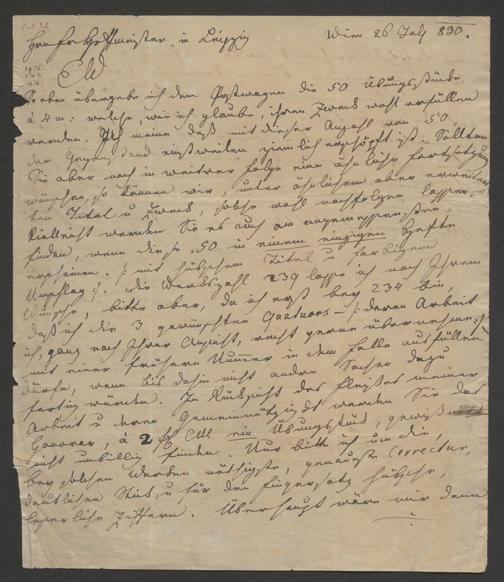 Herr Fr Hoffmeister in Leipzig Wien 26 July 830.
EW
Soeben übergebe ich dem Postwagen die 50 Übungsstücke
à 4 m: welche, wie ich glaube, ihren Zweck wohl erfüllen
werden. Ich meine daß mit dieser Anzahl von 50,
der Gegenstand einstweilen ziemlich erschöpft ist. Sollten
Sie aber noch in weiterer Folge eine ähnliche Fortsetzung
wünschen, so können wir, unter ähnlichem aber erweiter-
ten Titel u Zweck, solche wohl nachfolgen lassen.
Vielleicht werden Sie es auch am angemessensten
finden, wenn diese 50 in einem einzigen Hefte
erscheinen /: mit hübschem Titel u farbigem
Umschlag :/. Die Werkzahl 239 lasse ich nach Ihrem
Wunsche, bitte aber, da ich erst bey 234 bin,
daß ich die 3 gewünschten – /: deren Arbeit
ich, ganz nach Ihrer Ansicht, recht gerne übernehme :/
mit einer frühern Numer in dem Falle ausfüllen
dürfte, wenn bis dahin nicht andre Sachen dazu
fertig würden. In Rücksicht des Fleißes meiner
Arbeit u deren Gemeinnützigkeit werden Sie das
Honorar, à 2 # CM ein Übungsstück, gewiß
nicht unbillig finden. Nur bitte ich um die,
bey solchen Werken nöthigste, genauste Correctur,
deutlichen Stich, u für den Fingersatz hübsche,
leserliche Ziffern. Überhaupt wäre mir dann